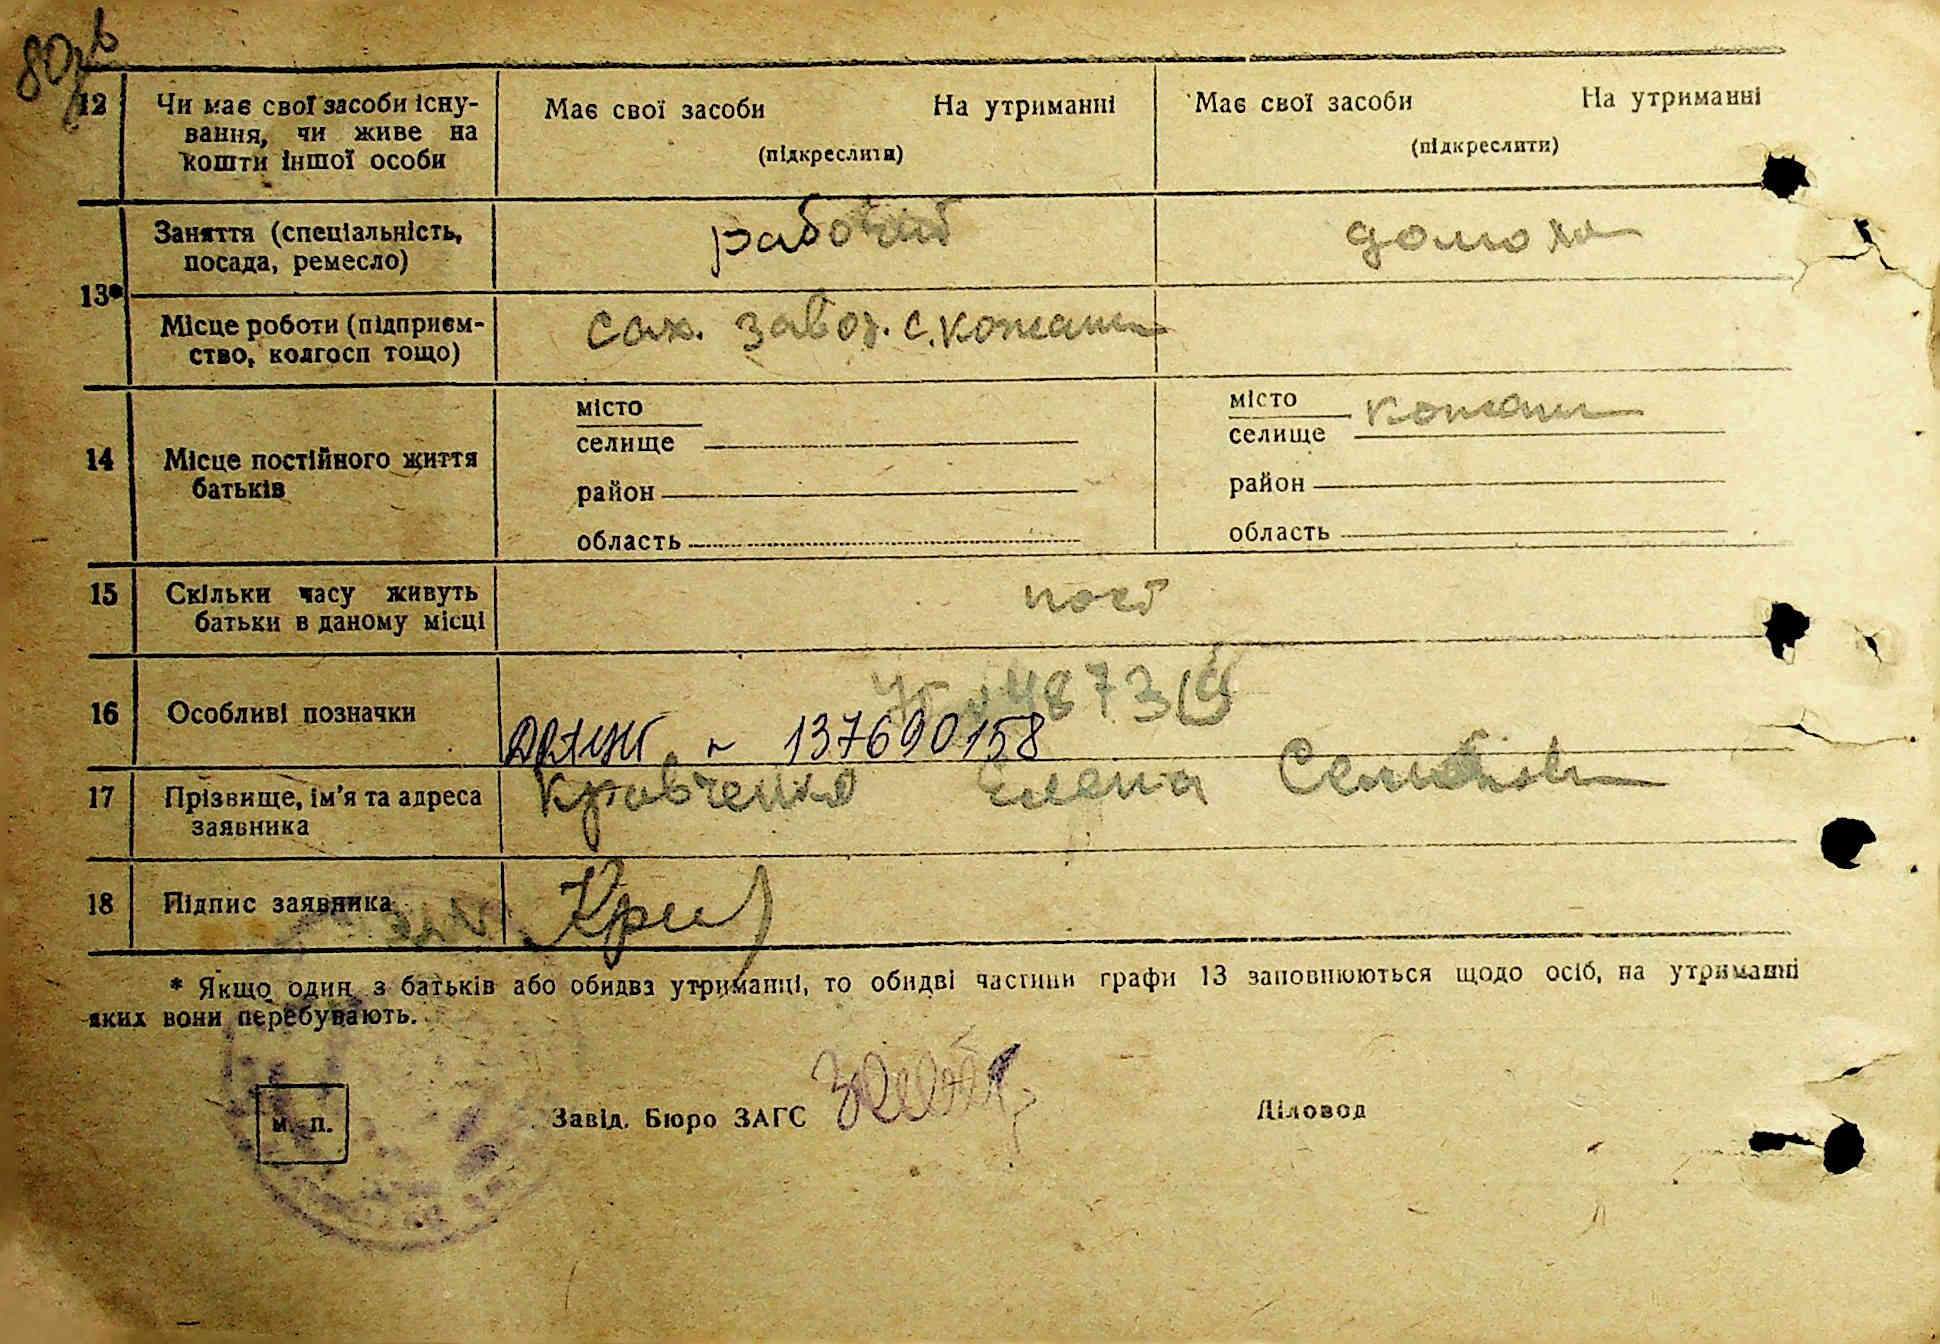 80 зв
12 Чи має свої засоби існу-
вання, чи живе на
кошти іншої особи
Має свої засоби На утриманні
(підкреслити)
Має свої засоби На утриманні
(підкреслити)
13*
Заняття (спеціальність,
посада, ремесло)
рабочий
домохо
Місце роботи (підприєм-
ство, колгосп тощо)
сах. завод. с. кожанк
14 Місце постійного життя
батьків
місто
селище
район
область
місто кожанк
селище
район
область
15 Скільки часу живуть
батьки в даному місці
пост
16 Особливі позначки
137690158
17 Прізвище, ім'я та адреса
заявника
Кравченко Елена
18 Підпис заявника
* Якщо один з батьків або обидва утриманці, то обидві частини графи 13 заповнюються щодо осіб, на утриманні
яких вони перебувають.
м. п.
Завід. Бюро ЗАГС
Діловод